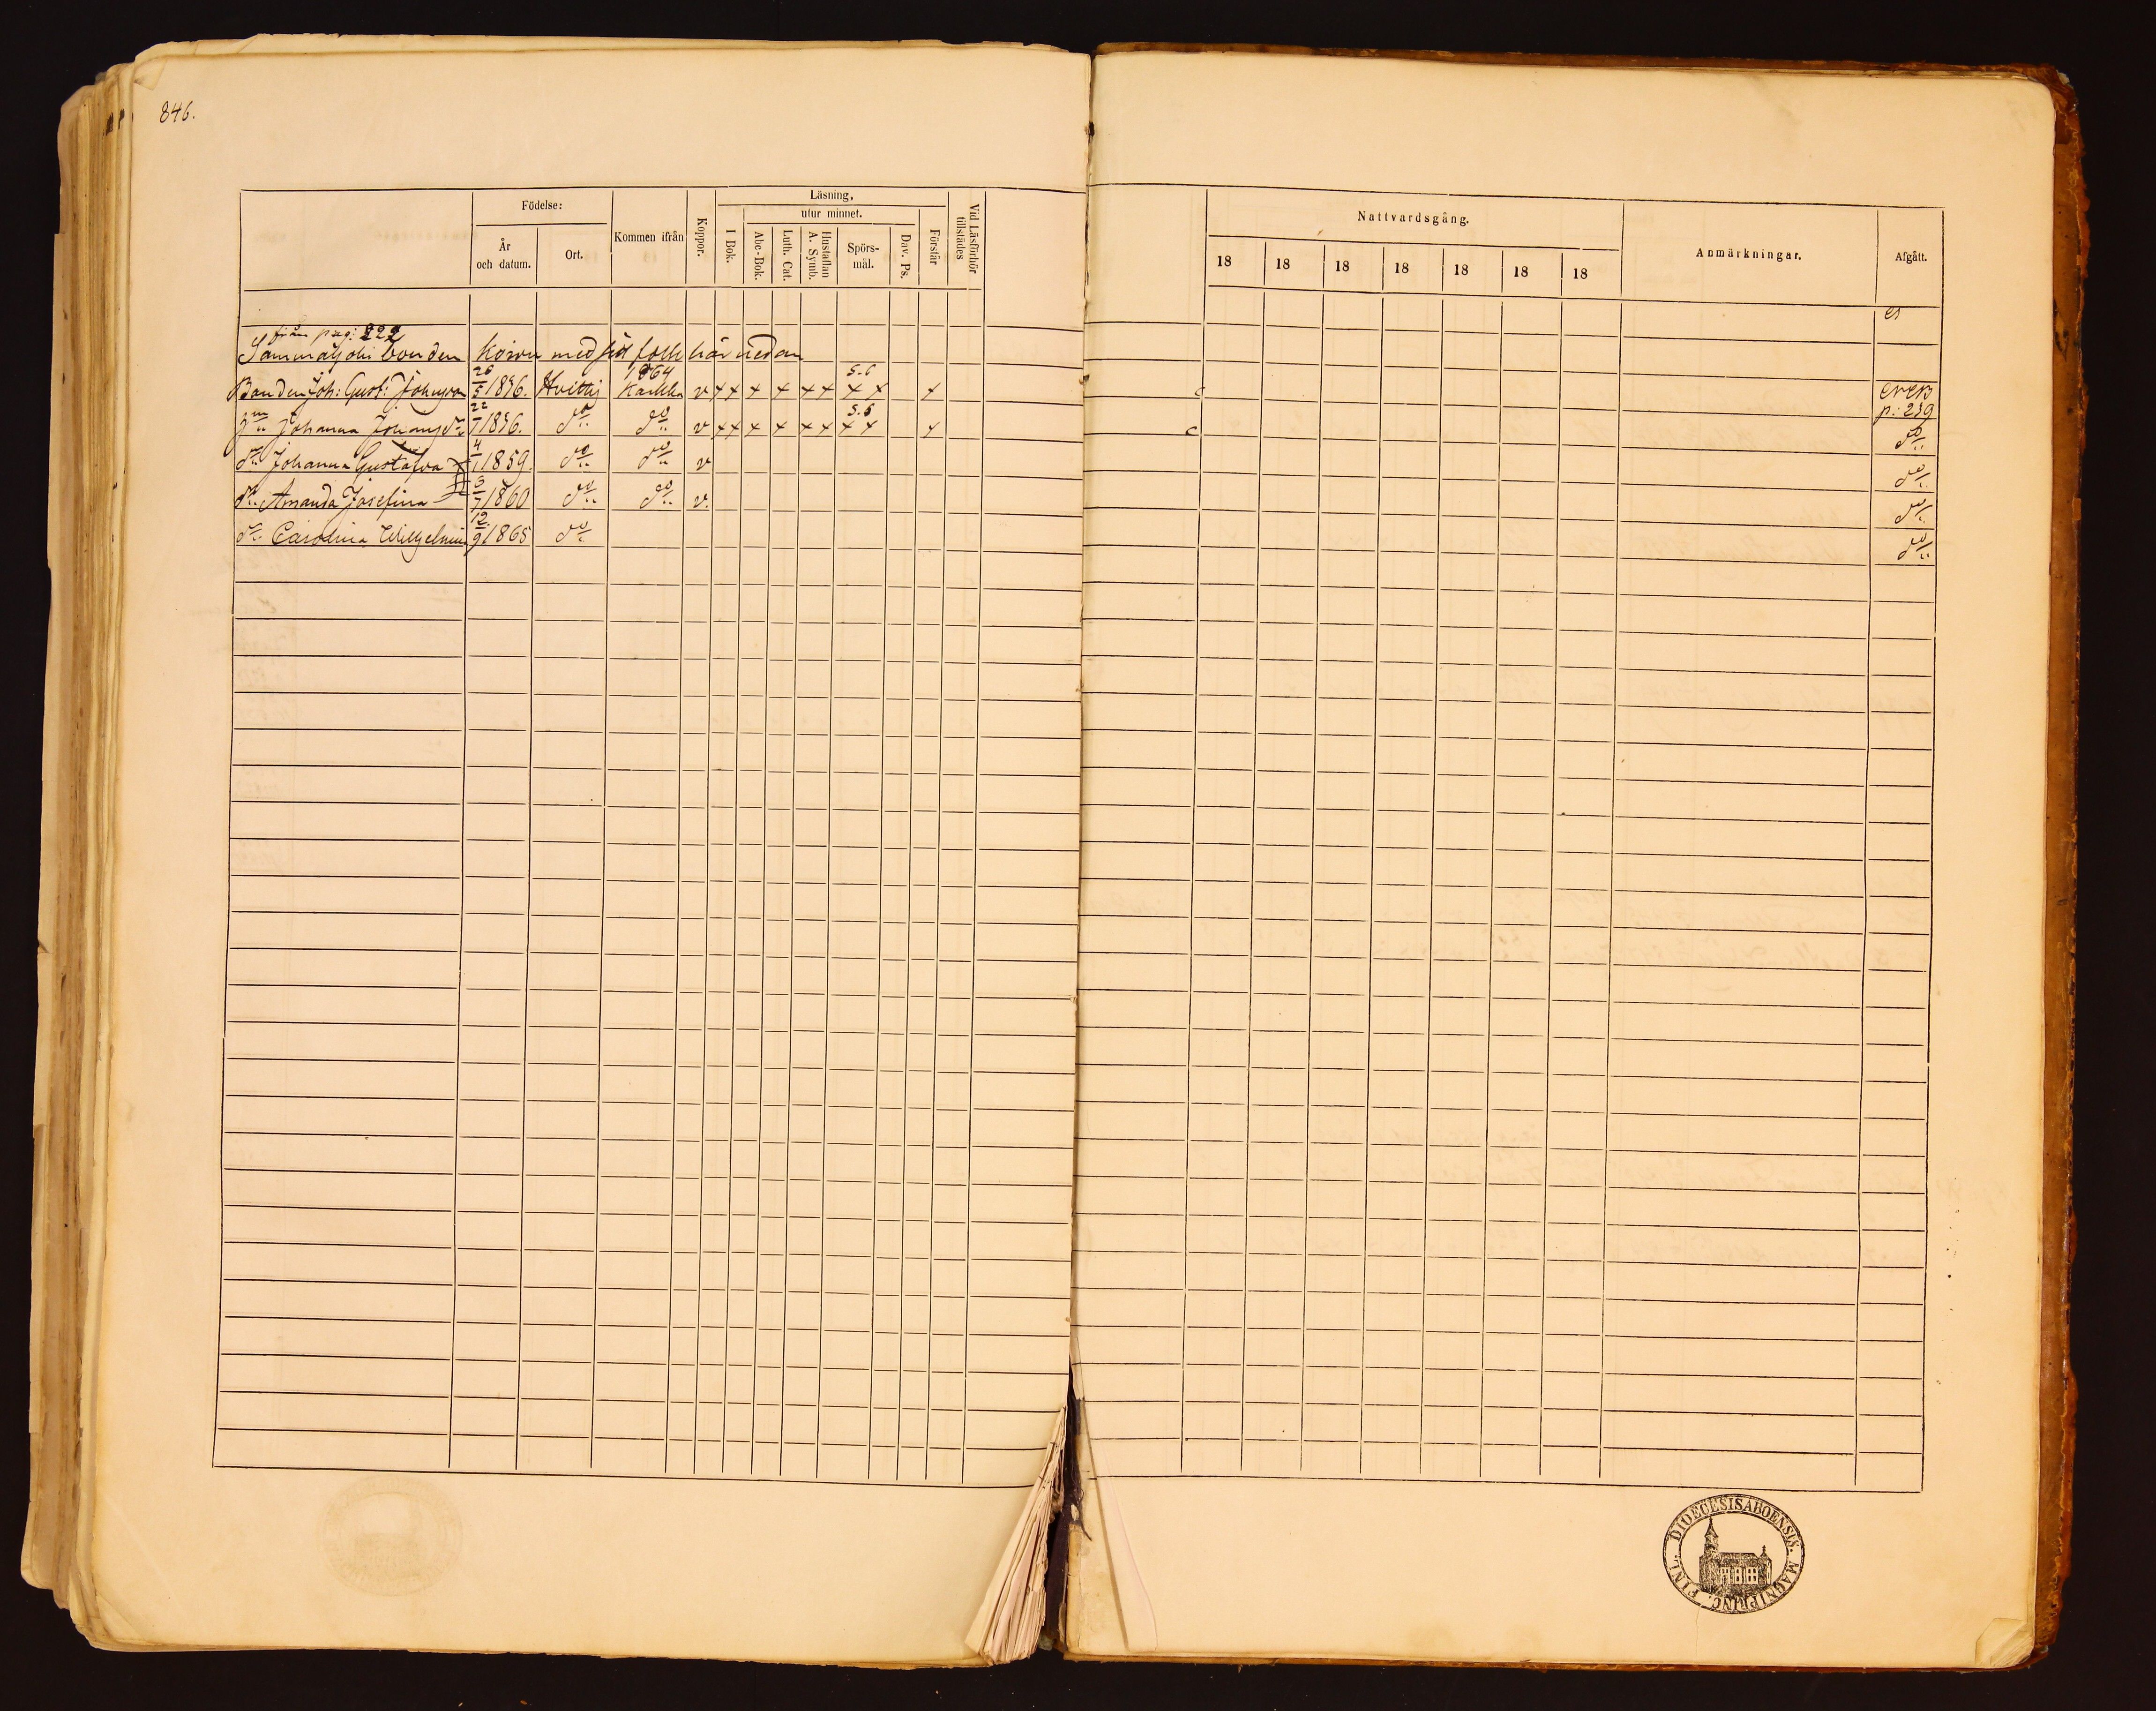 846.
Födelse:
År och datum.
Ort.
Kommen ifrån
Koppor.
Läsning,
utur minnet.
I Bok.
Abc-Bok.
Luth. Cat.
Hustaflan A. Symb.
Spörs-mål.
Dav. Ps.
Förstår
Vid Läsförhör tillstädes
Nattvardsgång.
18 18 18 18 18 18 18
Anmärkningar.
Afgått.
från pag: 222
Sammaljoki bonden med folk här nedan
Bonden Joh: Gust: Johansson 26/5 1836. Hvittis 1864 Karkku v 5.6 c p: 239
Johanna 22/7 1836. d:o d:o v 5.6 c d:o
d:r Johanna Gustafva 4/1 1859. d:o d:o v d:o
d:r Amanda Josefina 3/7 1860 d:o d:o v. d:o
d:r Carolina Wilhelmina 12/9 1865 d:o d:o
FINL. DIOECESIS ABOENSIS. MAGNI PRINC.